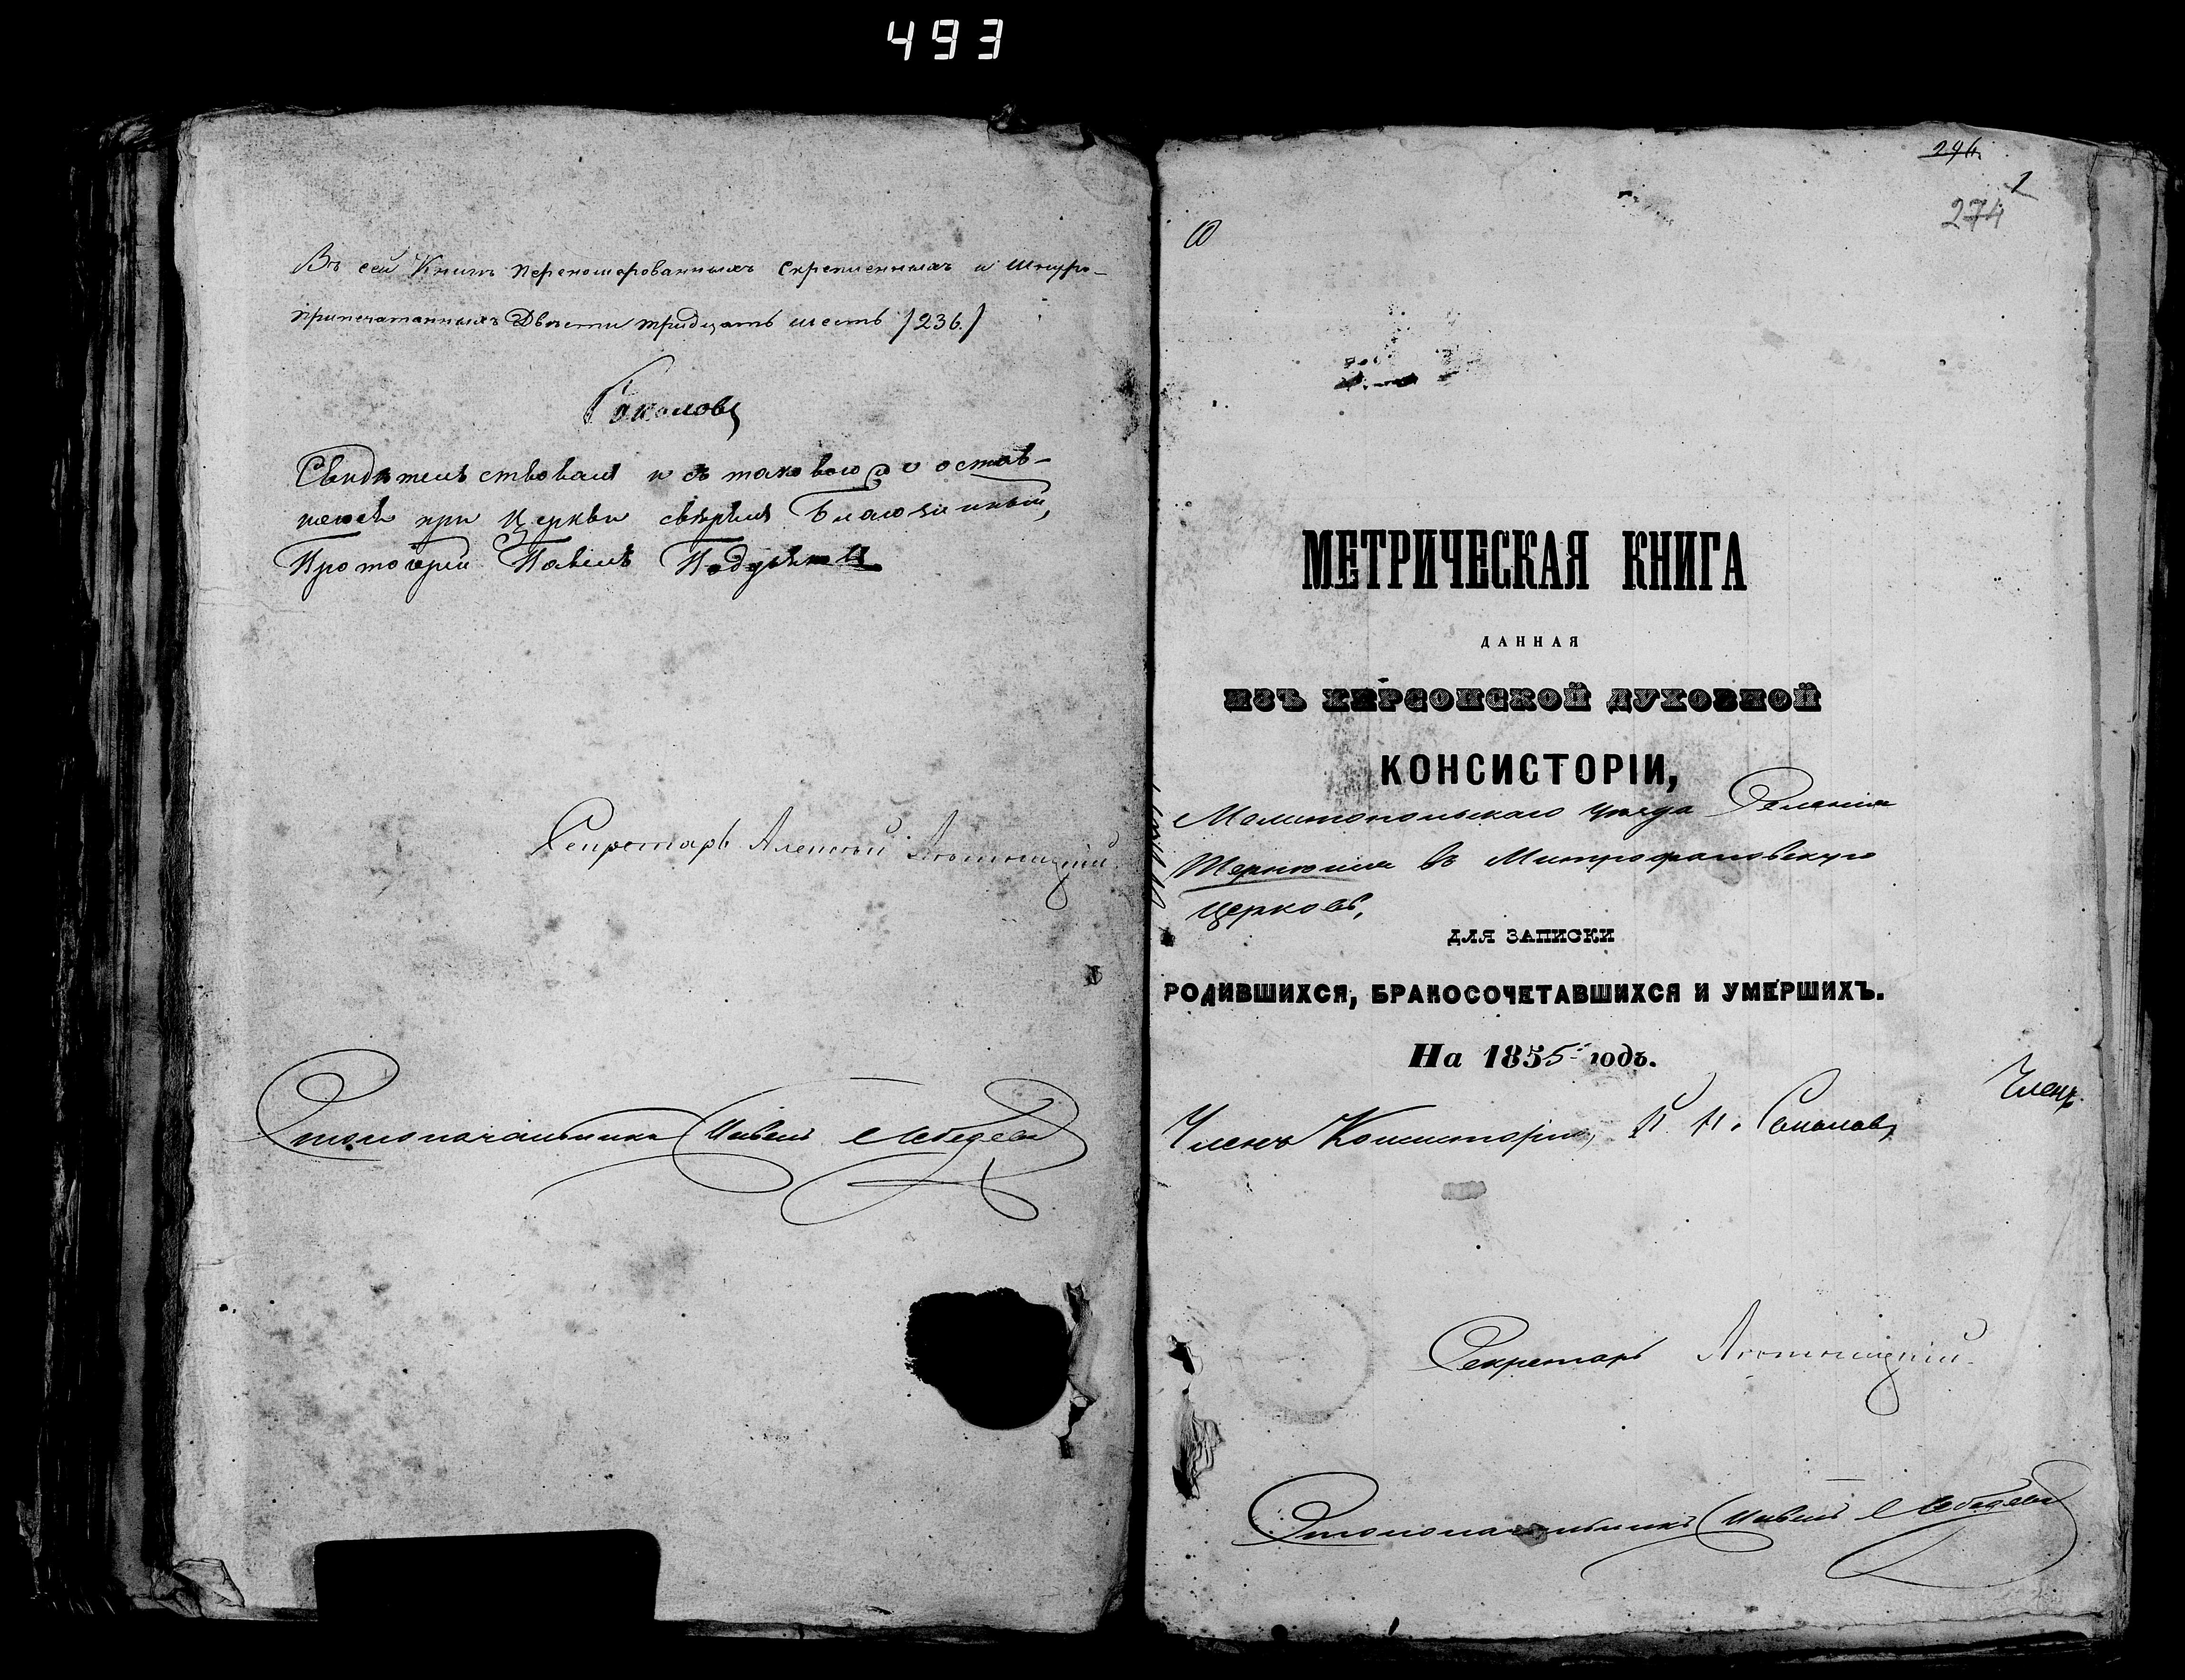 493
Въ сей Книгѣ перенумерованныхъ скрепленныхъ и шнуро-
припечатанныхъ Двѣсти тридцать шесть /236./
Соколовъ
Свидѣтельствовалъ и съ таковою остав-
шеюсь при Церкви свѣрялъ Благочинный,
Протоіерей Павелъ
Секретарь Алексѣй
Столоначальникъ Лебедевъ
296.
1
274
МЕТРИЧЕСКАЯ КНИГА
ДАННАЯ
ИЗЪ ХЕРСОНСКОЙ ДУХОВНОЙ
КОНСИСТОРІИ,
Мелитопольскаго уѣзда Селенія
въ Митрофановскую
Церковь,
ДЛЯ ЗАПИСКИ
РОДИВШИХСЯ, БРАКОСОЧЕТАВШИХСЯ И УМЕРШИХЪ.
На 1855 годъ.
Членъ
Членъ Консисторіи, Соколовъ
Секретарь
Столоначальникъ Лебедевъ